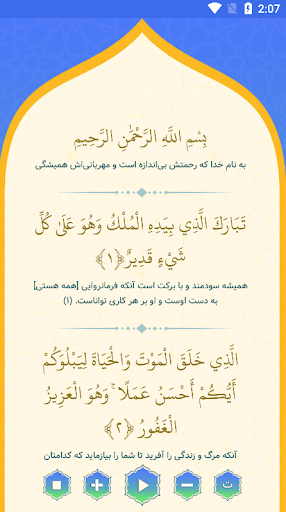 2:07
بِسْمِ اللَّهِ الرَّحْمَٰنِ الرَّحِيمِ
به نام خدا که رحمتش بی‌اندازه است و مهربانی‌اش همیشگی
تَبَارَكَ الَّذِي بِيَدِهِ الْمُلْكُ وَهُوَ عَلَىٰ كُلِّ
شَيْءٍ قَدِيرٌ ﴿۱﴾
همیشه سودمند و با برکت است آنکه فرمانروایی [همه هستی]
به دست اوست و او بر هر کاری تواناست. (۱)
الَّذِي خَلَقَ الْمَوْتَ وَالْحَيَاةَ لِيَبْلُوَكُمْ
أَيُّكُمْ أَحْسَنُ عَمَلًا ۚ وَهُوَ الْعَزِيزُ
الْغَفُورُ ﴿۲﴾
آنکه مرگ و زندگی را آفرید تا شما را بیازماید که کدامتان
ت